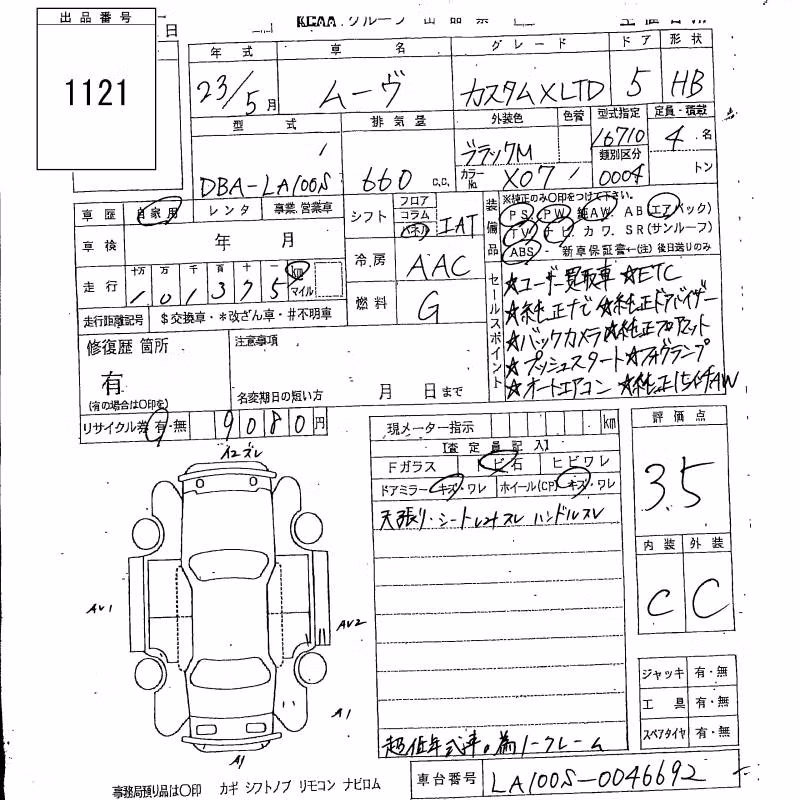 出品番号
1121
日
KCAA グループ 出品票
年式 車名 グレード ドア 形状
23/5月 ムーヴ カスタムXLTD 5 HB
型式 排気量 外装色 色替 型式指定 定員・積載
DBA-LA100S 660 C.C. ブラックM 16710 4名
カラーNo. X07 類別区分 0004 トン
車歴 自家用 レンタ 事業、営業車
シフト フロア コラム パネル IAT
装備品 ※純正のみ〇印をつけて下さい。
PS PW 純AW. AB(エアバック)
TV ナビ. カワ. SR(サンルーフ)
ABS - 新車保証書←(注)後日送りのみ
車検 年 月
冷房 AAC
走行 十万 万 千 百 十 一 km マイル
101375
燃料 G
走行距離記号 $交換車・*改ざん車・#不明車
セールスポイント
★ユーザー買取車 ★ETC
★純正ナビ ★純正ドアバイザー
★バックカメラ ★純正フロアマット
★プッシュスタート ★フォグランプ
★オートエアコン ★純正15インチAW
修復歴 箇所
有
(有の場合は〇印を)
注意事項
名変期日の短い方 月 日まで
リサイクル券 有・無 9080円
現メーター指示 km
評価点
3.5
【査定員記入】
Fガラス トビ石 ヒビワレ
ドアミラー キズ・ワレ ホイール(CP) キズ・ワレ
天張り・シートレナスレ ハンドルスレ
内装 外装
C C
A2ズレ
AV1
AV2
A1
A1
ジャッキ 有・無
工具 有・無
スペアタイヤ 有・無
超低年式車。為ノークレーム
事務局預り品は〇印 カギ シフトノブ リモコン ナビロム
車台番号 LA100S-0046692